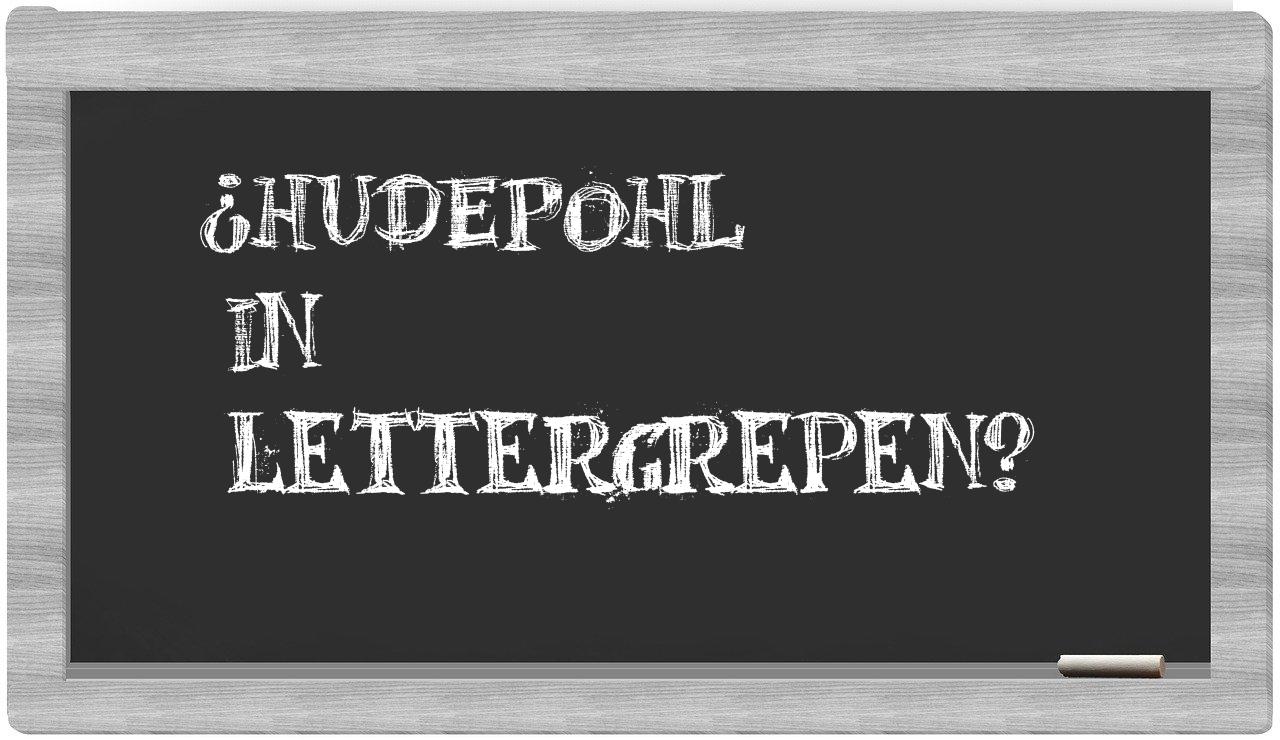 ¿HUDEPOHL
IN
LETTERGREPEN?